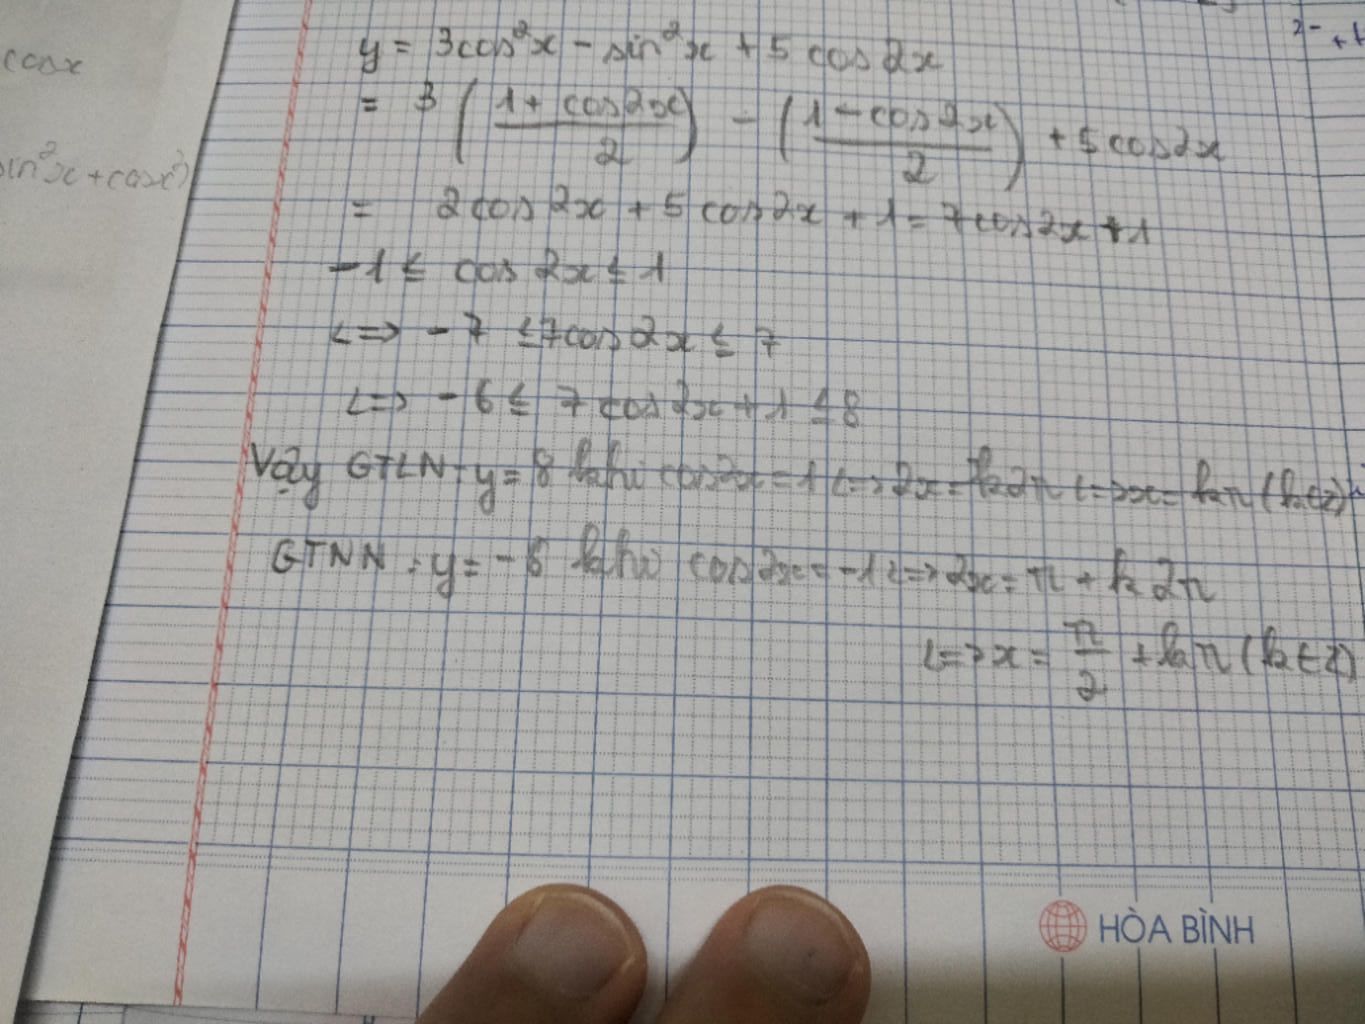 cosx
sin²x+cosx²)
y = 3cos²x - sin²x + 5 cos2x
= 3 ( 1 + cos2x / 2 ) - ( 1 - cos2x / 2 ) + 5 cos2x
= 2cos2x + 5 cos2x + 1 = 7cos2x + 1
-1 ≤ cos2x ≤ 1
<=> -7 ≤ 7cos2x ≤ 7
<=> -6 ≤ 7cos2x + 1 ≤ 8
Vậy GTLN: y = 8 khi cos2x = 1 <=> 2x = k2π <=> x = kπ (k∈Z)
GTNN: y = -6 khi cos2x = -1 <=> 2x = π + k2π
<=> x = π/2 + kπ (k∈Z)
HÒA BÌNH